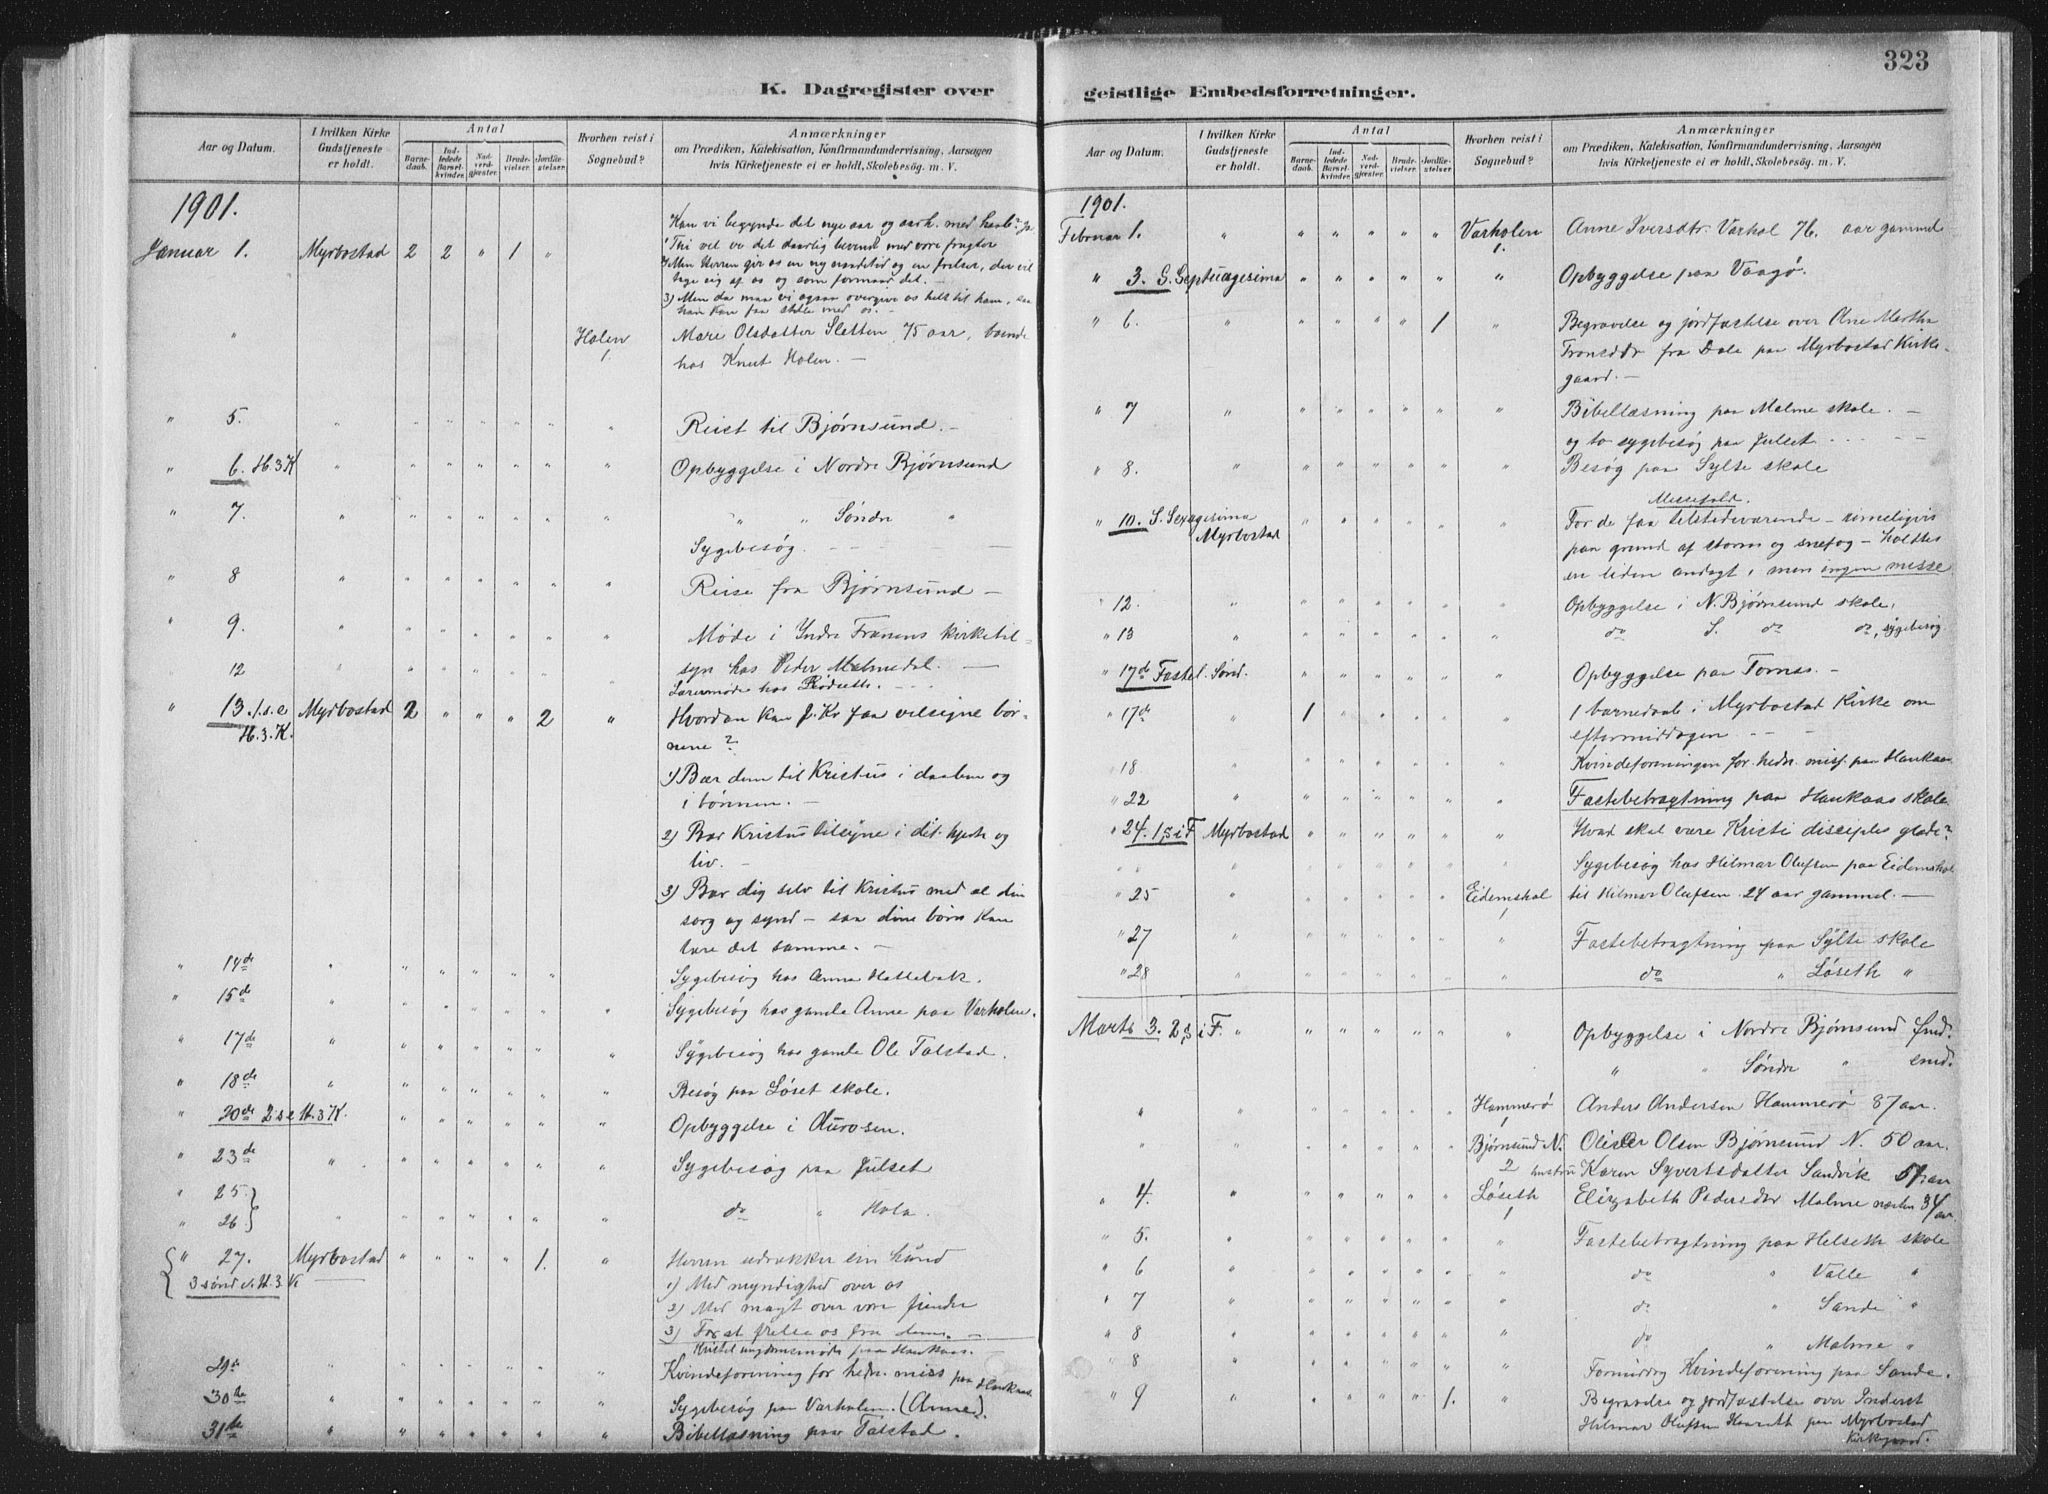 323
K. Dagregister over
geistlige Embedsforretninger.
Aar og Datum.
I hvilken Kirke Gudstjeneste er holdt.
Antal
Barnedaab.
Indledede Barselkvinder.
Nadverdgjæster.
Brudevielser.
Jordfæstelser.
Hvorhen reist i Sognebud?
Anmærkninger
om Prædiken, Katekisation, Konfirmandundervisning, Aarsagen
hvis Kirketjeneste ei er holdt, Skolebesøg. m. V.
1901.
Kan vi begynde det nye aar og aarh. med haab?
Januar 1. Myrbostad 2 2 " 1 " 1 Thi vel er det daarlig bevendt med vore frugter
2) Men Herren gir os en ny naadetid og en frelser, der vil
tage sig af os og som formaar det. —
3) Men da maa vi ogsaa overgive os helt til ham, saa
han kan faa stelle med os. —
" Holen 1. Mare Olsdatter Sletten 75 aar, boende
hos Knut Holen. —
" 5. " " " " " " " Reist til Bjørnsund. —
" 6. H. 3 K " " " " " " " Opbyggelse i Nordre Bjørnsund
" 7. " " " " " " " " " Søndre "
Sygebesøg. — — —
" 8 " " " " " " " Reise fra Bjørnsund —
" 9. " " " " " " " Møde i Yndre Frænens kirketil-
syn hos Peder Malmedal. —
" 12 " " " " " " " Lærermøde hos Rødseth. - - -
" 13. 1. s. e H. 3. K. Myrbostad 2 " " " 2 " Hvordan kan J. Kr faa velsigne bør-
nene?
1) Bær dem til Kristus i daaben og
i bønnen. —
2) Bær Kristus tilsyne i dit hjerte og
liv. —
3) Bær dig selv til Kristus med al din
sorg og synd — saa dine børn kan
lære det samme. —
" 14de " " " " " " Sygebesøg hos Anna Hattebak.
" 15de " " " " " " " Sygebesøg hos gamle Anne paa Varholen.
" 17de " " " " " " " Sygebesøg hos gamle Ole Talstad.
" 18de " " " " " " " Besøg paa Løset skole.
" 20de 2 s e H. 3 K. " " " " " " Opbyggelse i Aurosen.
" 23de " " " " " " " Sygebesøg paa Julset
" 25.
" 26 " " " " " " " do " Hola.
" 27. Myrbostad " " " " 1. " Herren udrækker sin hånd
3 sønd e. H. 3 K 1) Med myndighed over os
2) Med magt over vore fiender
3) For at frelse os fra dem. —
Kristel. ungdomsmøde paa Haukaas. —
29de " " " " " " " Kvindeforening for hedn. miss paa Haukaas
30te " " " " " " " Sygebesøg paa Varholen. (Anne).
31te " " " " " " " Bibellæsning paa Talstad.
Aar og Datum.
I hvilken Kirke Gudstjeneste er holdt.
Antal
Barnedaab.
Indledede Barselkvinder.
Nadverdgjæster.
Brudevielser.
Jordfæstelser.
Hvorhen reist i Sognebud?
Anmærkninger
om Prædiken, Katekisation, Konfirmandundervisning, Aarsagen
hvis Kirketjeneste ei er holdt, Skolebesøg. m. V.
1901.
Februar 1. " " " " " " Varholen 1. Anne Iversdtr. Varhol 76. aar gammel
" 3. S. Septuagesima " " " " " " Opbyggelse paa Vaagø.
" 6. " " " " " 1 " Begravelse og jordfæstelse over Ane Martha
Tronsdtr fra Dale paa Myrbostad Kirke-
gaard. —
" 7 " " " " " " " Bibellæsning paa Malme skole. —
og to sygebesøg paa Julset - - - —
" 8. " " " " " " " Besøg paa Sylte skole
Messefald.
" 10. S. Sexagesima Myrbostad " " " " " " For de faa tilstedeværende — rimeligvis
paa grund af storm og snefog — holdtes
en liden andagt, men ingen messe
" 12. " " " " " " " Opbyggelse i N. Bjørnsund skole.
" 13 " " " " " " " do S. do do, sygebesøg.
" 17de Fastel. Sønd. " " " " " " Opbyggelse paa Tornes. —
" 17de " 1 " " " " " 1 barnedaab i Myrbostad Kirke om
eftermiddagen - - -
" 18 " " " " " " " Kvindeforeningen for hedn. miss. paa Haukaas
" 22 " " " " " " " Fastebetragtning paa Haukaas skole
" 24. 1. s i F Myrbostad " " " " " " Hvad skal være Kristi disciples glæde?
" " " " " " " " Sygebesøg hos Hilmar Olufsen paa Eidemshol
" 25 " " " " " " Eidemshol 1 til Hilmar Olufsen. 24 aar gammel. —
" 27 " " " " " " " Fastebetragtning paa Sylte skole
" 28 " " " " " " " do " Løseth "
Marts 3. 2 s i F. " " " " " " " Opbyggelse i Nordre Bjørnsund fmd.
" " Søndre " emd.
" " " " " " " Hammerø 1 Anders Andersen Hammerø 87 aar.
" " " " " " " Bjørnsund N. Olsen Bjørnsund N. 50 aar
2 hustru Karen Syvertsdatter Sandvik aar
" 4. " " " " " " Løseth 1 Elizabeth Pedersdtr Malme næsten 34 aar.
" 5. " " " " " " " Fastebetragtning paa Helseth skole
" 6 " " " " " " " do " Valle "
" 7 " " " " " " " do " Sande "
" 8 " " " " " " " do " Malme "
" 8 " " " " " " " Formiddag Kvindeforening paa Sande.
" 9 " " " " " 1. " Begravelse og jordfæstelse over Inderst
Hilmar Olufsen paa Myrbostad
Kirkegaard.